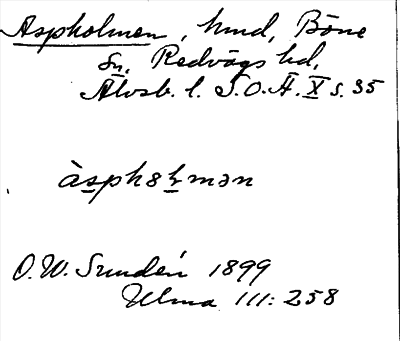 Aspholmen, hmd, Böne
sn, Redvägs hd,
Älvsb. l. S.O.Ä. X s. 35
àsphɷlmən
O.W. Sundén 1899
Ulma 111:258